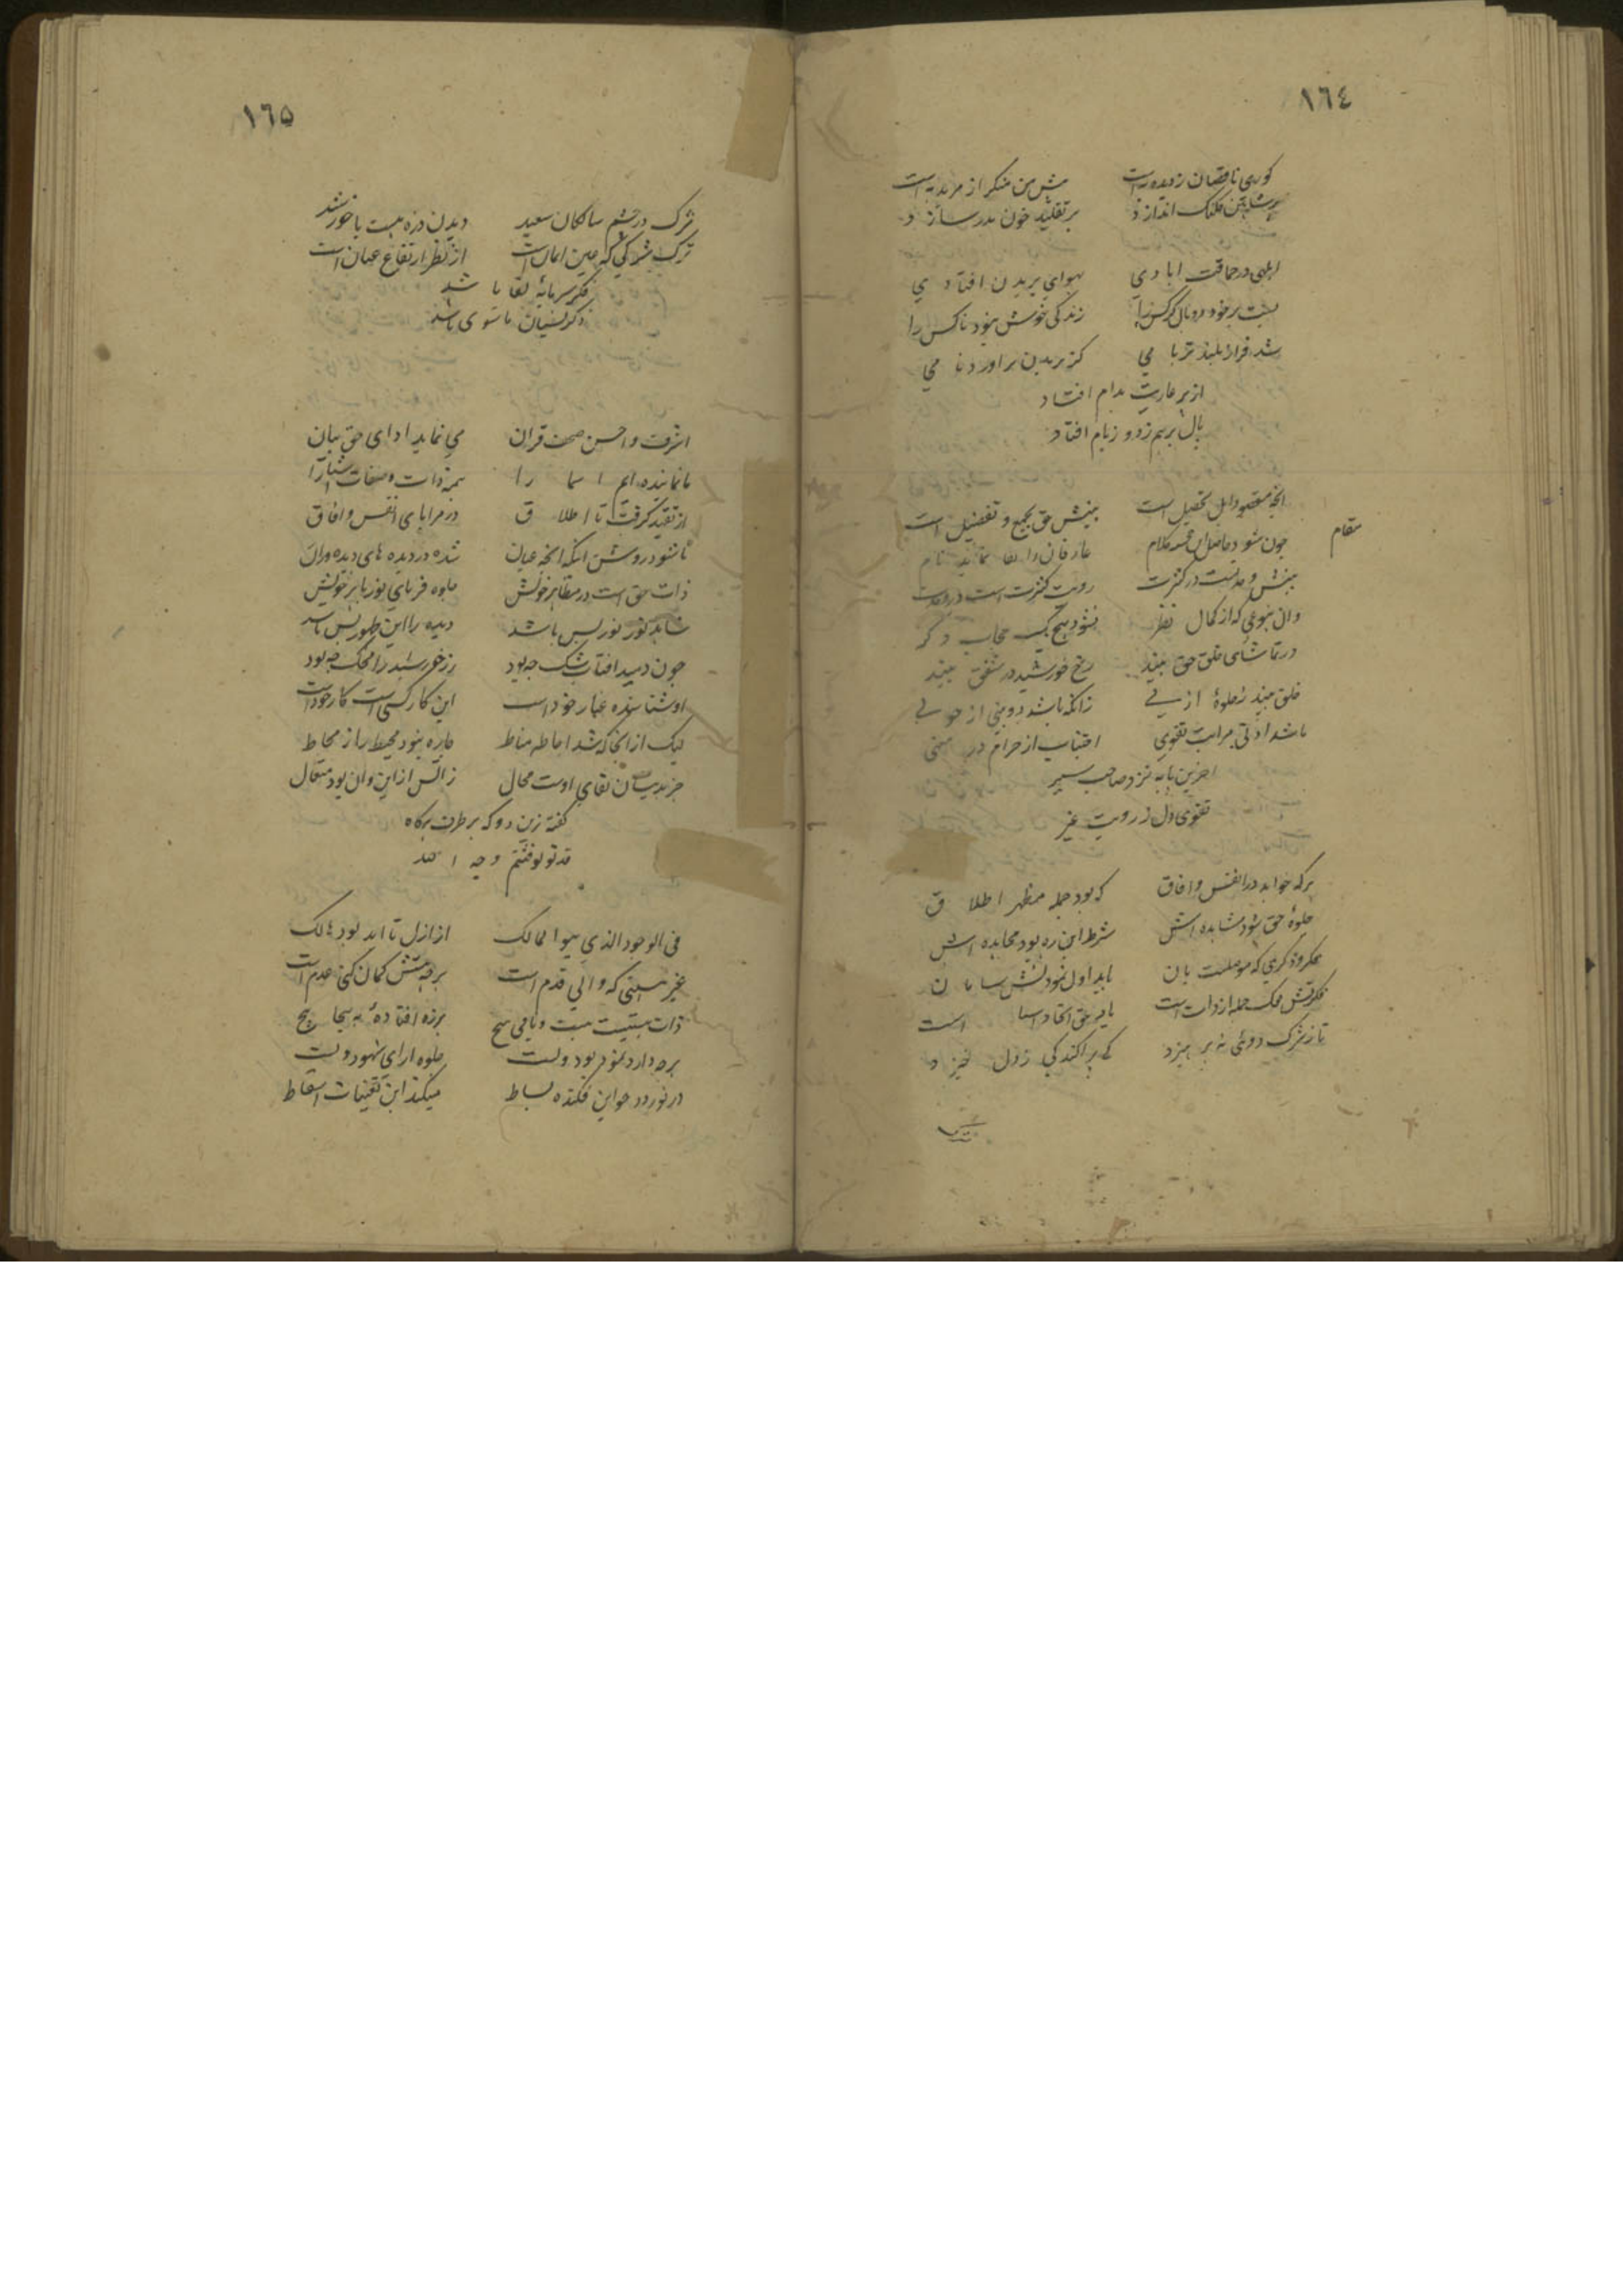 ١٦٤
کوری ناقصان زدیده است منکر از مرید به است
اندازد بر تقلید خون مدر سازد
ابلهی در حماقت ابادی بهوای پریدن افتادی
بست بر خود دو بال کرکس را زندکی خوش نبود ناکس را
شد فراز بلند تر بامی کز پریدن بر اورد نامی
از پر عاریت بدام افتاد
بال برهم زد و ز بام افتاد
مقام
انچه مقصود اهل تحصیل است بینش حق بجمع و تفصیل است
چون شود حاصل این کلام عارفان را لقا نماید نام
بینش وحدتست در کثرت رویت کثرت است در وحدت
وان بنوعی که از کمال نظر نشود هیچ یک حجاب دکر
در تماشای خلق حق بیند رخ خورشید در شفق بیند
خلق بیند ز جلوهٔ ازلی زانکه باشد دو بینی از حولی
باشد ادنی مراتب تقوی اجتناب از حرام در معنی
اخرین پایه نزد صاحب سیر
تقوی دل ز رویت غیر
هرکه خواهد در انفس و افاق که بود جمله مظهر اطلاق
جلوهٔ حق شود مشاهده اش شرط این ره بود مجاهده اش
باید اول نمودنش سامان
حمله از ذات است است
تا ز شرک دوئی نه پرهیزد کی پراکندکی ز دل خیزد
١٦٥
شرک در چشم سالکان سعید دیدن ذره هست با خورشید
ترک شرکی که عین ایمان است از نظر ارتفاع عیان است
فکر سرمایهٔ لقا باشد
ذکر نسیان ماسوی باشد
اشرف و احسن صحف قران می نماید ادای حق بیان
ما نماینده ایم اسما را همه ذات و صفات اشیا را
از تقید کرفت تا اطلاق در مرایای انفس و افاق
تا شود روشن اینکه انچه عیان شده در دیده های دیده وران
ذات حق است در مظاهر خویش جلوه فرمای نور باهر خویش
شاهد نور نور بس باشد دیده را این ظهور بس باشد
چون دمید افتاب شک چه بود زر خورشید را محک چه بود
او شناسنده عیار خود است این کار کسی است کار خود است
لیک از انجا که شد احاطه مناط چاره نبود محیط را ز محاط
جز بدیشان لقای اوست محال زانکس از این و ان بود متعال
کفته زین دو که بر طرف نکاه
قد تولوا فثم وجه الله
فی الوجود الذی هو المالک از ازل تا ابد بود هالک
غیر هستی که والی قدم است هر چه هستش کمان کنی عدم است
ذات هستیست هست و باقی هیچ هرزه افتادهٔ به پیچا پیچ
هرچه دارد نمود بود ویست جلوه ارای شهود ویست
در نوردد چو این فکنده بساط میکند این تعینات اسقاط